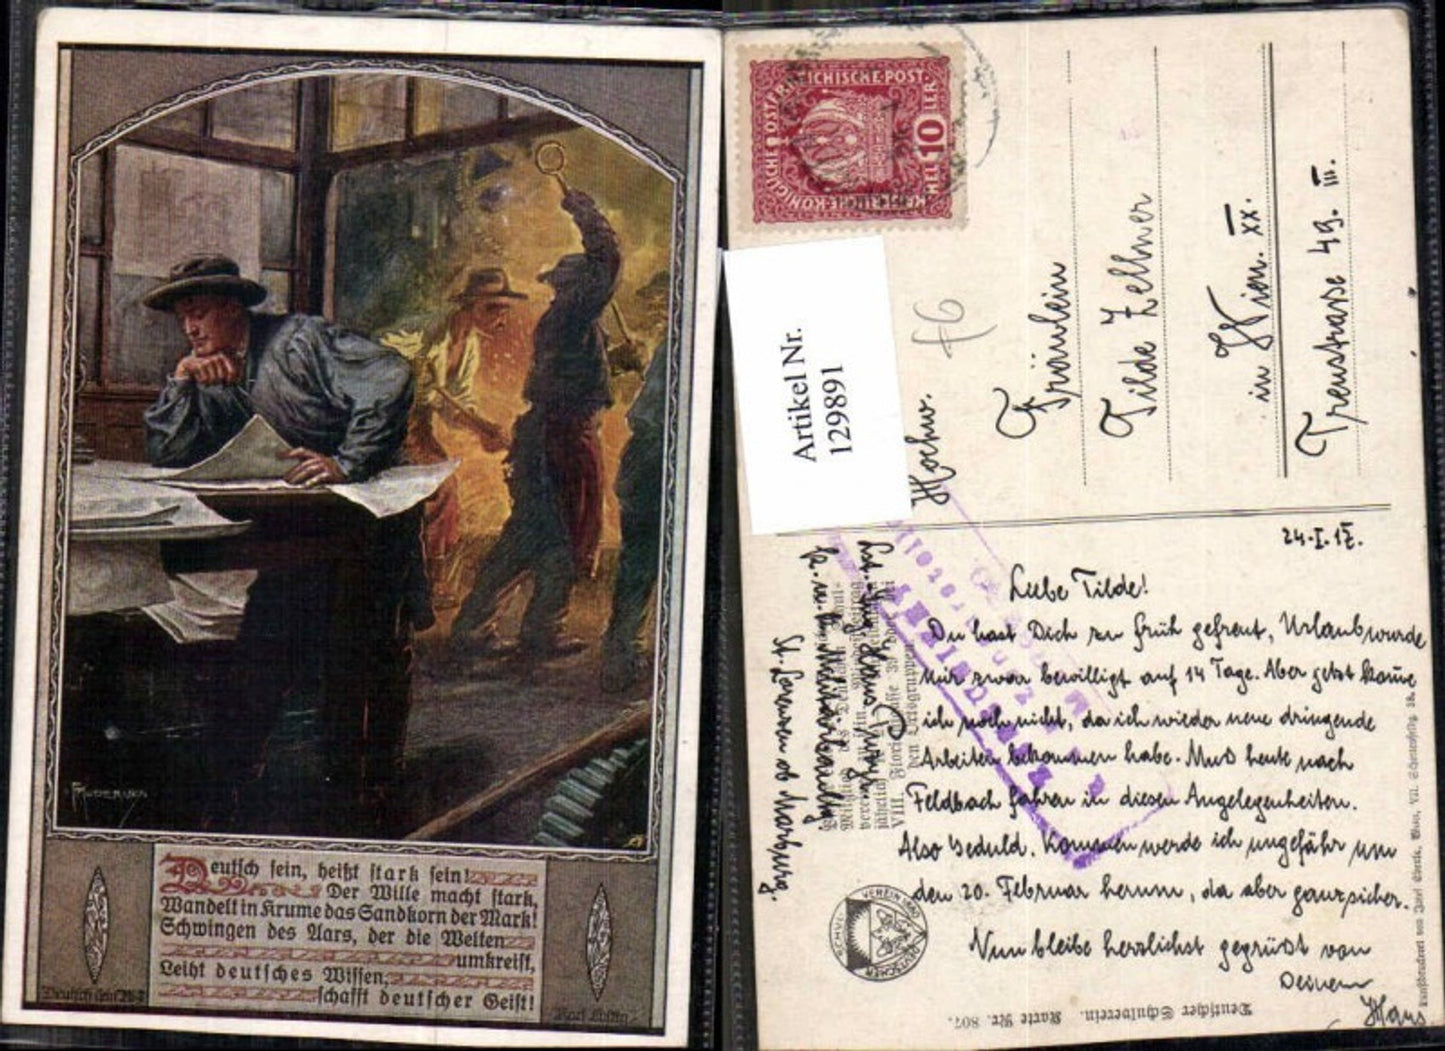 Deutsch sein, heißt stark sein!
Der Wille macht stark,
Wandelt in Krume das Sandkorn der Mark!
Schwingen des Aars, der die Welten
umkreist,
Leiht deutsches Wissen,
schafft deutscher Geist!
KAISERLICHE KÖNIGLICHE ÖSTERREICHISCHE POST
10 HELLER
Artikel Nr.
129891
f6
Hochw.
Fräulein
Tilde Zellner
in Wien. XX.
49. III.
24.I.17.
Liebe Tilde!
Du hast Dich zu früh gefreut, Urlaub wurde
mir zwar bewilligt auf 14 Tage. Aber jetzt kom̄e
ich noch nicht, da ich wieder neue dringende
Arbeiten bekommen habe. Muß heute nach
Feldbach fahren in diesen Angelegenheiten.
Also Geduld. Kommen werde ich ungefähr um
den 20. Februar herum, da aber ganz sicher.
Nun bleibe herzlichst gegrüßt von
Deinem
Hans
St. Lorenzen ob Marburg.
DEUTSCHER SCHUL-VEREIN 1880
Deutscher Schulverein. Karte Nr. 807.
Kunstdruckerei von Josef Eberle, Wien, VII. Schottenfeldg. 38.